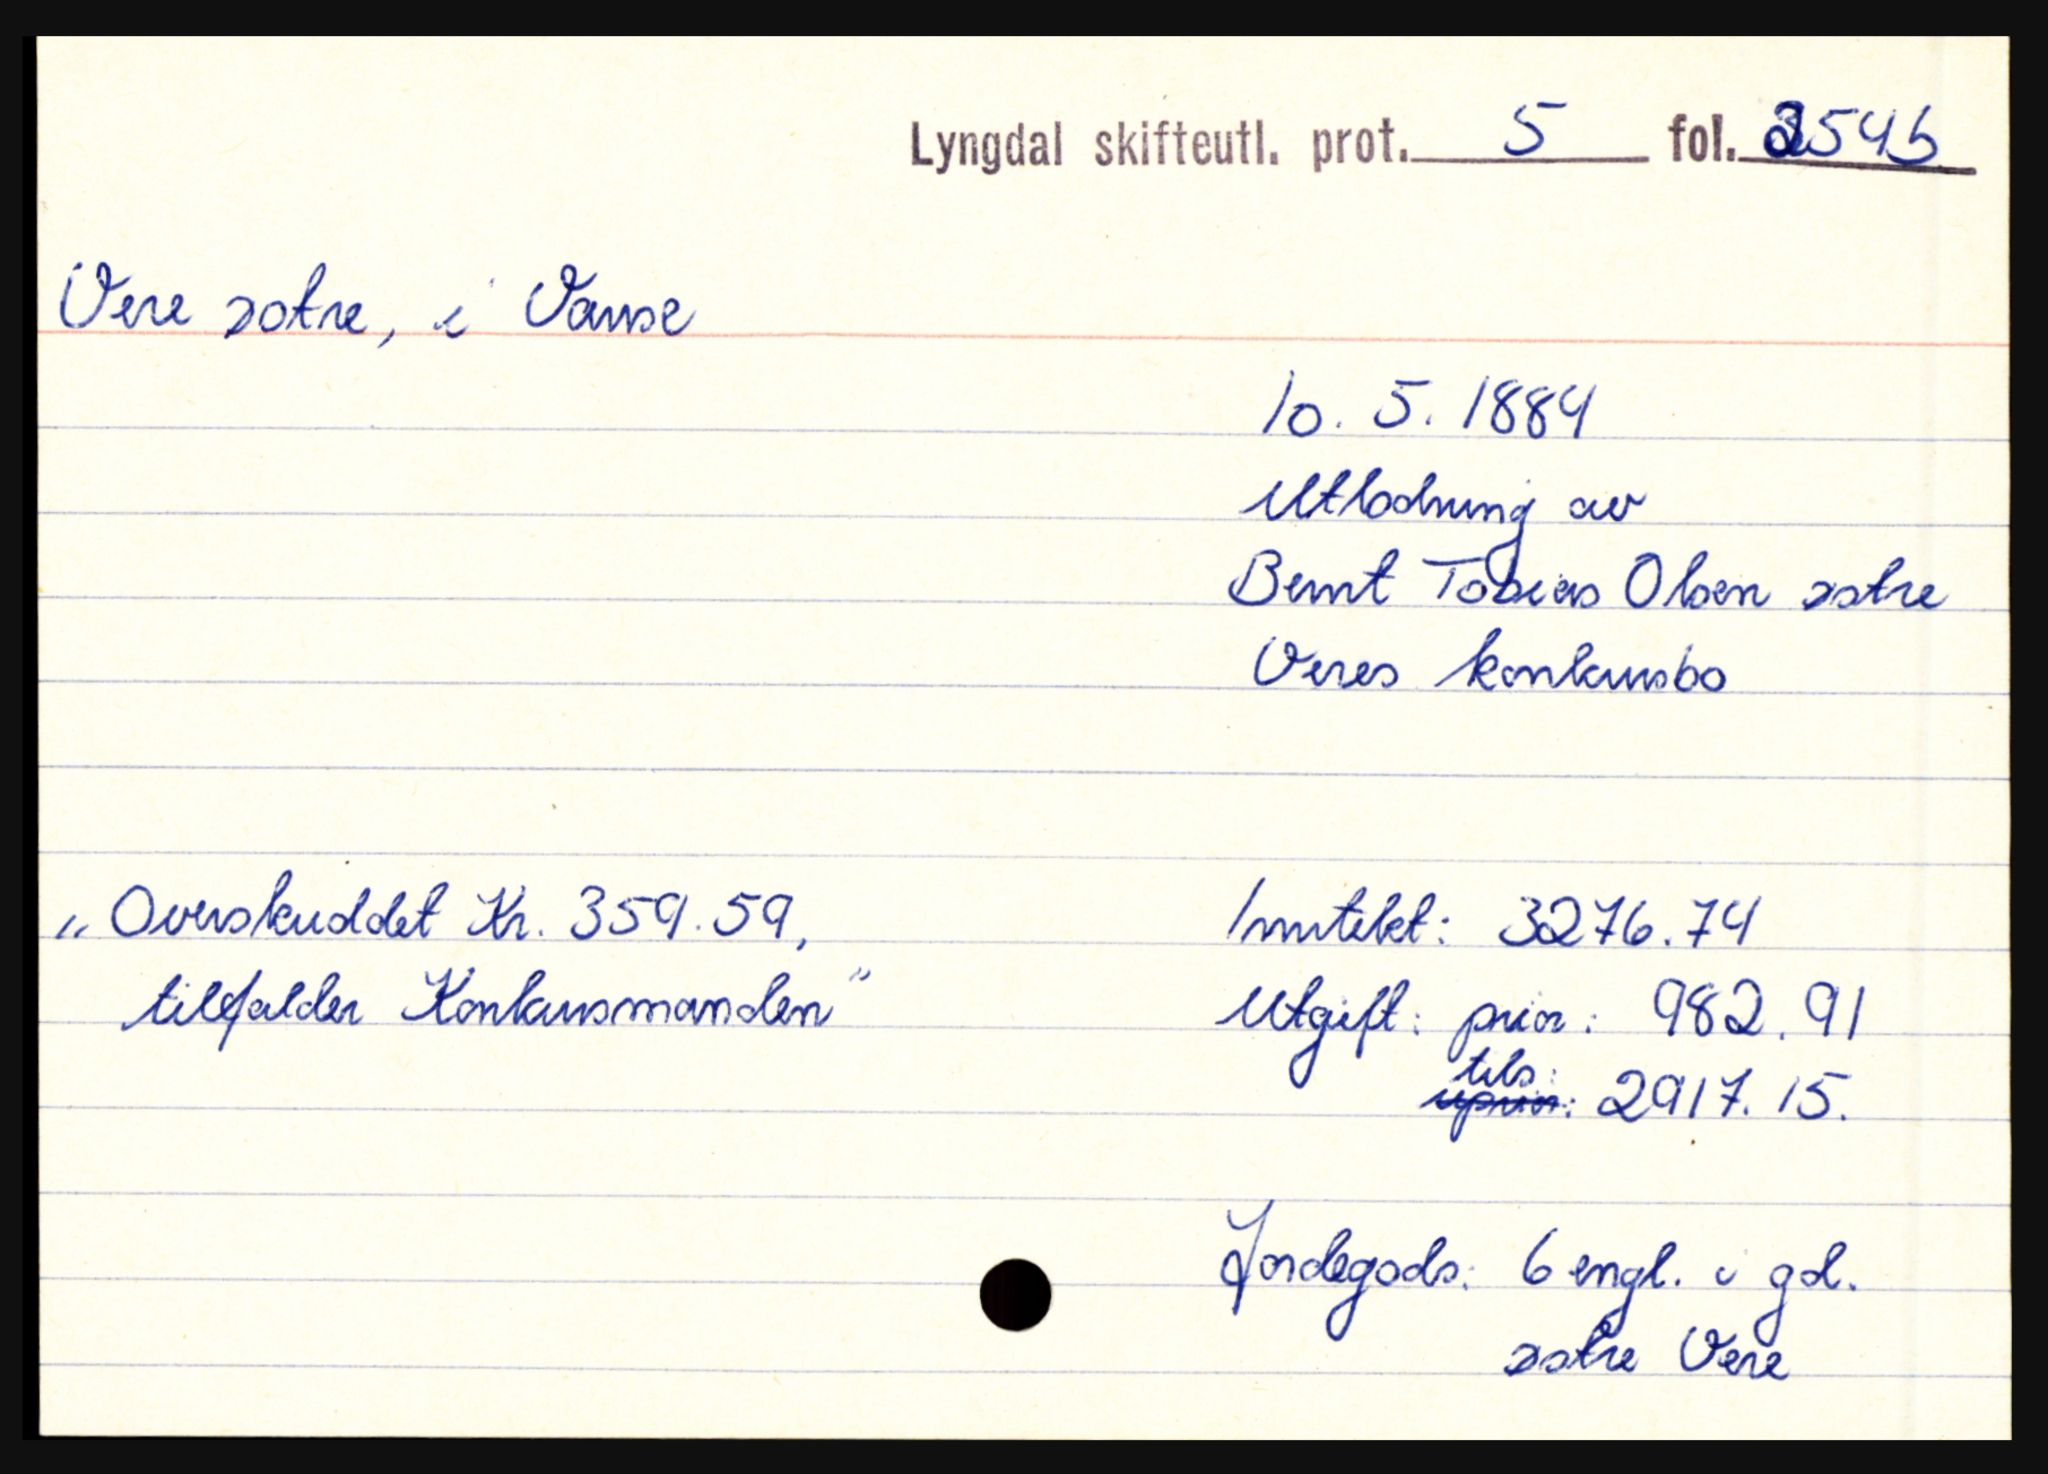 Lyngdal skifteutl. prot. 5 fol. 254b
Vere østre, i Vanse
10. 5. 1884
Utlodning av
Bernt Tobias Olsen østre
Veres konkursbo
„Overskuddet Kr. 359.59, Inntekt: 3276.74
tilfalder Konkursmanden" Utgift: prior: 982.91
tils:
uprior: 2917.15.
Jordegods: 6 engl. i gd.
østre Vere